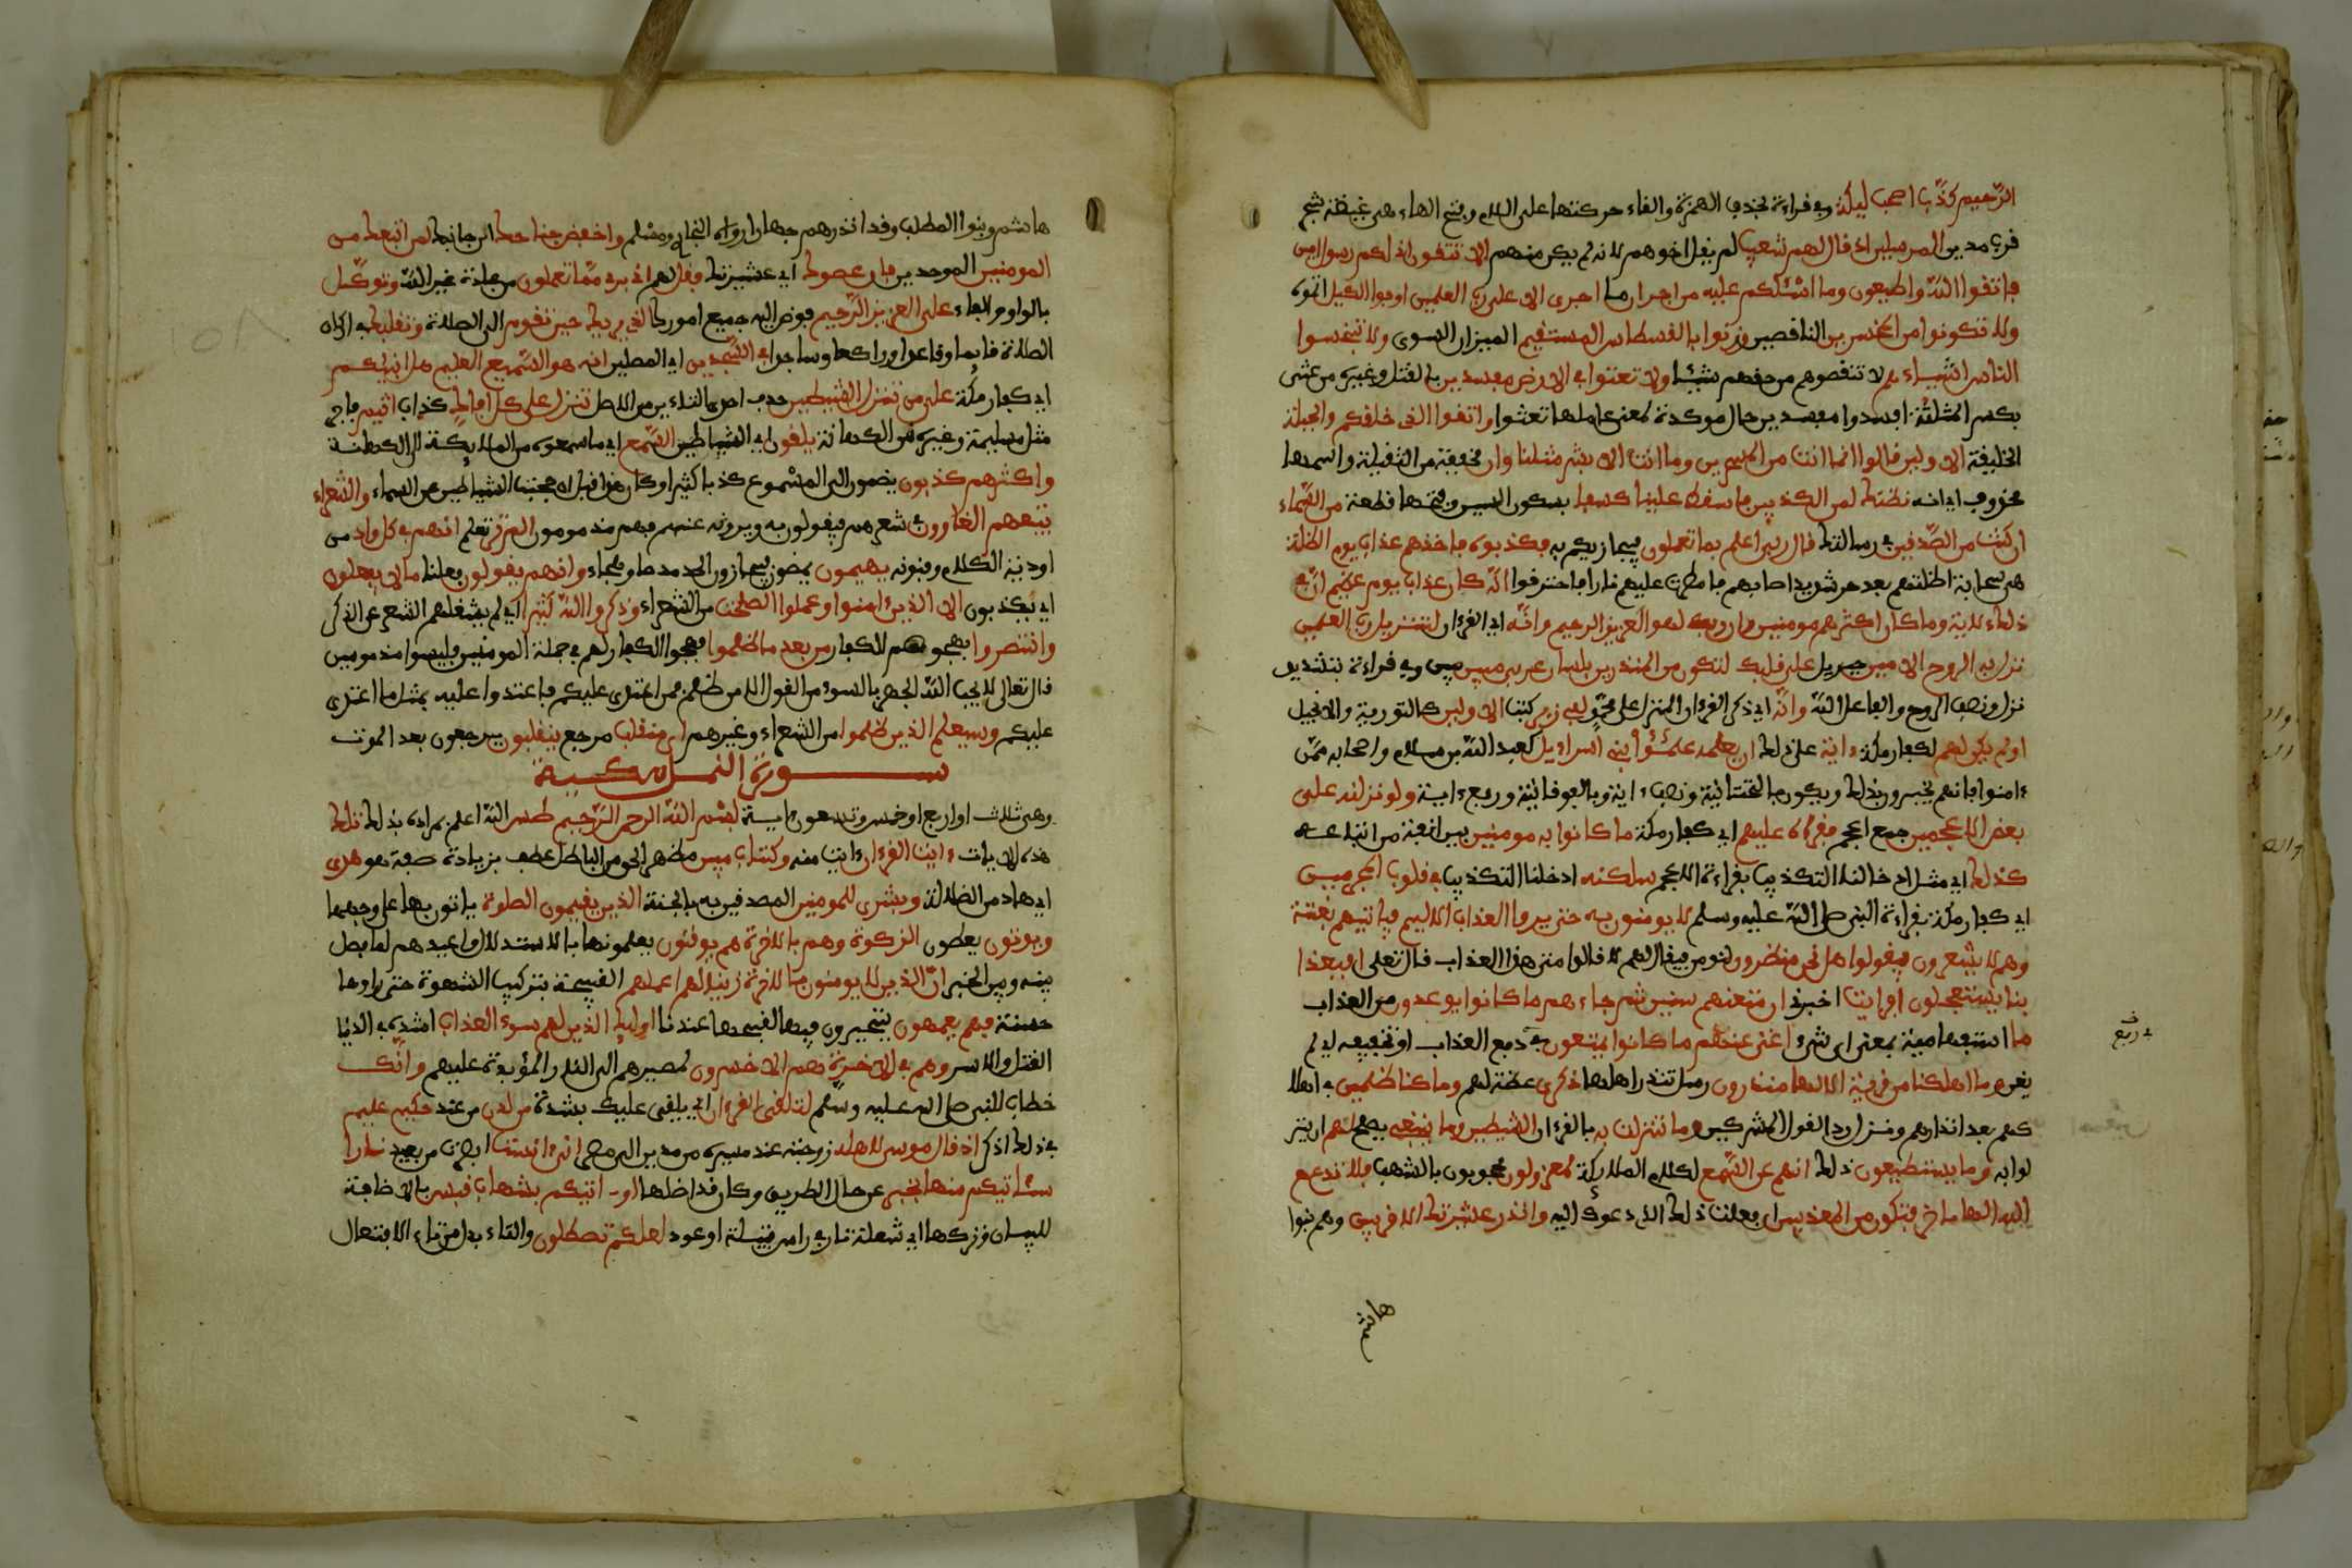 الرحيم كذب اصحب ليكة وفي قراءة بحذف الهمزة والقاء حركتها على اللام وفتح الهاء هي غيضة شجر
قرب مدين المرسلين اذ قال لهم شعيب لم يقل اخوهم لانه لم يكن منهم الا تتقون اني لكم رسول امين
فاتقوا الله واطيعون وما اسئلكم عليه من اجر ان ما اجرى الا على رب العلمين اوفوا الكيل اتموه
ولا تكونوا من المخسرين الناقصين وزنوا بالقسطاس المستقيم الميزان السوى ولا تبخسوا
الناس اشياءهم لا تنقصوهم من حقهم شيئا ولا تعثوا في الارض مفسدين بالقتل وغيره من عثى
بكسر المثلثة افسد ومفسدين حال موكدة لمعنى عاملها تعثوا واتقوا الذى خلقكم والجبلة
الخليقة الاولين قالوا انما انت من المسحرين وما انت الا بشر مثلنا وان مخففة من الثقيلة واسمها
محذوف اي انه نظنك لمن الكذبين فاسقط علينا كسفا بسكون السين وفتحها قطعة من السماء
ان كنت من الصدقين في رسالتك قال ربى اعلم بما تعملون فيجازيكم به فكذبوه فاخذهم عذاب يوم الظلة
هي سحابة اظلتهم بعد حر شديد اصابهم فامطرت عليهم نارا فاحترقوا انه كان عذاب يوم عظيم ان في
ذلك لاية وما كان اكثرهم مومنين وان ربك لهو العزيز الرحيم وانه اي القرءان لتنزيل رب العلمين
نزل به الروح الامين جبريل على قلبك لتكون من المنذرين بلسان عربي مبين بين وفي قراءة بتشديد
نزل ونصب الروح والفاعل الله وانه اي ذكر القرءان المنزل على محمد لفي زبر كتب الاولين كالتورية والانجيل
اولم يكن لهم لكفار مكة ءاية على ذلك ان يعلمه علمؤا بني اسراءيل كعبد الله بن سلام واصحابه ممن
ءامنوا فانهم يخبرون بذلك ويكون بالتحتانية ونصب ءاية وبالفوقانية ورفع ءاية ولو نزلنه على
بعض الاعجمين جمع اعجم فقراه عليهم اي كفار مكة ما كانوا به مومنين انفة من اتباعه
كذلك اي مثل ادخالنا التكذيب بقراءة الاعجم سلكنه ادخلنا التكذيب في قلوب المجرمين
اي كفار مكة بقراءة النبي صلى الله عليه وسلم لا يومنون به حتى يروا العذاب الاليم فياتيهم بغتة
وهم لا يشعرون فيقولوا هل نحن منظرون لنومن فيقال لهم لا قالوا متى هذا العذاب قال تعلى افبعذا
بنا يستعجلون افرايت اخبرني ان متعنهم سنين ثم جاءهم ما كانوا يوعدون من العذاب
ما استفهامية بمعنى اي شيء اغنى عنهم ما كانوا يمتعون في دفع العذاب او تخفيفه اي لم
يغن وما اهلكنا من قرية الا لها منذرون رسل تنذر اهلها ذكرى عظة لهم وما كنا ظلمين في اهلا
كهم بعد انذارهم ونزل ردا لقول المشركين وما تنزلت به بالقرءان الشيطين وما ينبغي يصلح لهم ان ينز
لوا به وما يستطيعون ذلك انهم عن السمع لكلام الملائكة لمعزولون محجوبون بالشهب فلا تدع مع
الله الها ءاخر فتكون من المعذبين ان فعلت ذلك الذي دعوك اليه وانذر عشيرتك الاقربين وهم بنوا
هاشم
هاشم وبنوا المطلب وقد انذرهم جهارا رواه البخاري ومسلم واخفض جناحك الن جانبك لمن اتبعك من
المومنين الموحدين فان عصوك اي عشيرتك فقل لهم اني برىء مما تعملون من عبادة غير الله وتوكل
بالواو والفاء على العزيز الرحيم فوض اليه جميع امورك الذي يريك حين تقوم الى الصلاة وتقلبك في اركان
الصلاة قايما وقاعدا وراكعا وساجدا في السجدين اي المصلين انه هو السميع العليم هل انبئكم
اي كفار مكة على من تنزل الشيطين حذف احدى التاءين من الاصل تنزل على كل افاك كذاب اثيم فاجر
مثل مسيلمة وغيره من الكهانة يلقون اي الشياطين السمع اي ما سمعوه من الملايكة الى الكهنة
واكثرهم كذبون يضمون الى المسموع كذبا كثيرا وكان هذا قبل ان حجبت الشياطين عن السماء والشعراء
يتبعهم الغاوون في شعرهم فيقولون به ويروونه عنهم فهم مذمومون الم تر تعلم انهم في كل واد من
اودية الكلام وفنونه يهيمون يمضون فيجاوزون الحد مدحا وهجاء وانهم يقولون فعلنا ما لا يفعلون
اي يكذبون الا الذين ءامنوا وعملوا الصلحت من الشعراء وذكروا الله كثيرا اي لم يشغلهم الشعر عن الذكر
وانتصروا بهجوهم للكفار من بعد ما ظلموا بهجو الكفار لهم في جملة المومنين فليسوا مذمومين
قال تعالى لا يحب الله الجهر بالسوء من القول الا من ظلم فمن اعتدى عليكم فاعتدوا عليه بمثل ما اعتدى
عليكم وسيعلم الذين ظلموا من الشعراء وغيرهم اي منقلب مرجع ينقلبون يرجعون بعد الموت
سورة النمل مكية
وهي ثلاث او اربع او خمس وتسعون ءاية بسم الله الرحمن الرحيم طس الله اعلم بمراده بذلك تلك
هذه الايات ءايت القرءان ءايت منه وكتاب مبين مظهر الحق من الباطل عطف بزيادة صفة هو هدى
اي هاد من الضلالة وبشرى للمومنين المصدقين به بالجنة الذين يقيمون الصلوة ياتون بها على وجهها
ويوتون يعطون الزكوة وهم بالاخرة هم يوقنون يعلمونها بالاستدلال واعيد هم لما فصل
بينه وبين الخبر ان الذين لا يومنون بالاخرة زينا لهم اعملهم القبيحة بتركيب الشهوة حتى راوها
حسنة فهم يعمهون يتحيرون فيها لقبحها عندنا اوليك الذين لهم سوء العذاب اشده في الدنيا
القتل والاسر وهم في الاخرة هم الاخسرون لمصيرهم الى النار المؤبدة عليهم وانك
خطاب للنبي صلى الله عليه وسلم لتلقى القرءان اي يلقى عليك بشدة من لدن من عند حكيم عليم
في ذلك اذكر اذ قال موسى لاهله زوجته عند مسيره من مدين الى مصر اني ءانست ابصرت من بعيد نارا
سئاتيكم منها بخبر عن حال الطريق وكان قد اضلها او اتيكم بشهاب قبس بالاضافة
للبيان وتركها اي شعلة نار في راس فتيلة او عود لعلكم تصطلون والتاء بدل من تاء الافتعال